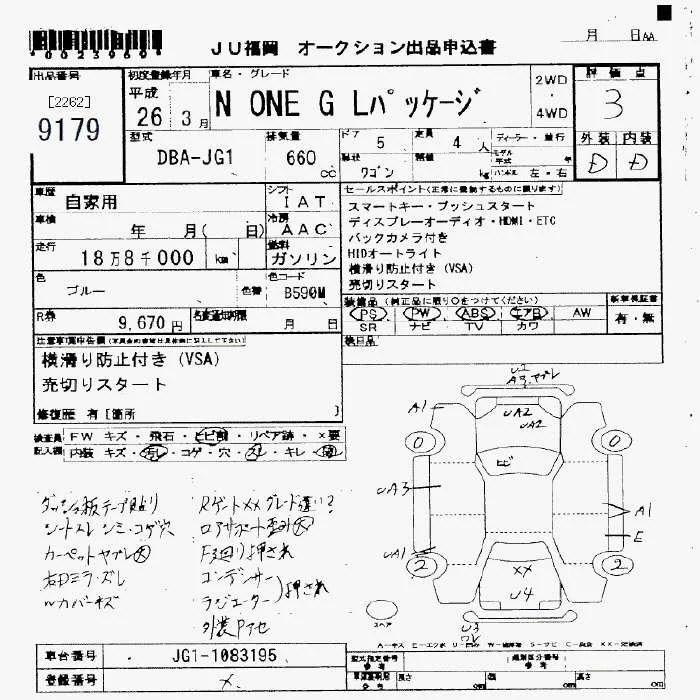 *0023969*
JU福岡 オークション出品申込書
月 日AA
出品番号
[2262]
9179
初度登録年月
平成
26 3月
車名・グレード
N ONE G Lパッケージ
2WD
・
4WD
評価点
3
型式
DBA-JG1
排気量
660
cc
ドア 5
定員 4 人
形状
ワゴン
積載
kg
ディーラー・並行
モデル
年式
年
ハンドル 左・右
外装 内装
D D
車歴
自家用
シフト
IAT
車検
年 月( 日)
冷房
AAC
走行
18万8千000 km
燃料
ガソリン
色
ブルー
色替
色コード
B590M
R券
9,670円
名変通知期限
月 日
セールスポイント(正常に機能するものに限ります)
スマートキー・プッシュスタート
ディスプレーオーディオ・HDMI・ETC
バックカメラ付き
HIDオートライト
横滑り防止付き(VSA)
売切りスタート
装備品(純正品に限り○をつけてください)
PS PW ABS エアB AW
SR ナビ TV カワ
新車保証書
有・無
後日品
注意事項申告欄
横滑り防止付き(VSA)
売切りスタート
修復歴 有[箇所 ]
検査員
記入欄
FW キズ・飛石・ヒビ割・リペア跡・×要
内装 キズ・汚レ・コゲ・穴・スレ・キレ・
ダッシュ板テープ貼り
シートスレ シミ・コゲ穴
カーペットヤブレ大
右Dミラーズレ
〃カバーキズ
Rゲート××グレード違い?
ロアサポート歪み大
F廻り押され
コンデンサー
ラジエーター
押され
外装Pアセ
U2
A3.ヤブレ
A1
UA2
UA2
0
0
ヒビ
UA3
A1
E
UA1
2
2
××
U4
U3
スペア
A-キズ E-エクボ
車台番号
JG1-1083195
登録番号
×
型式指定番号
参考
類別区分番号
参考
長さ
cm
幅
cm
高さ
cm